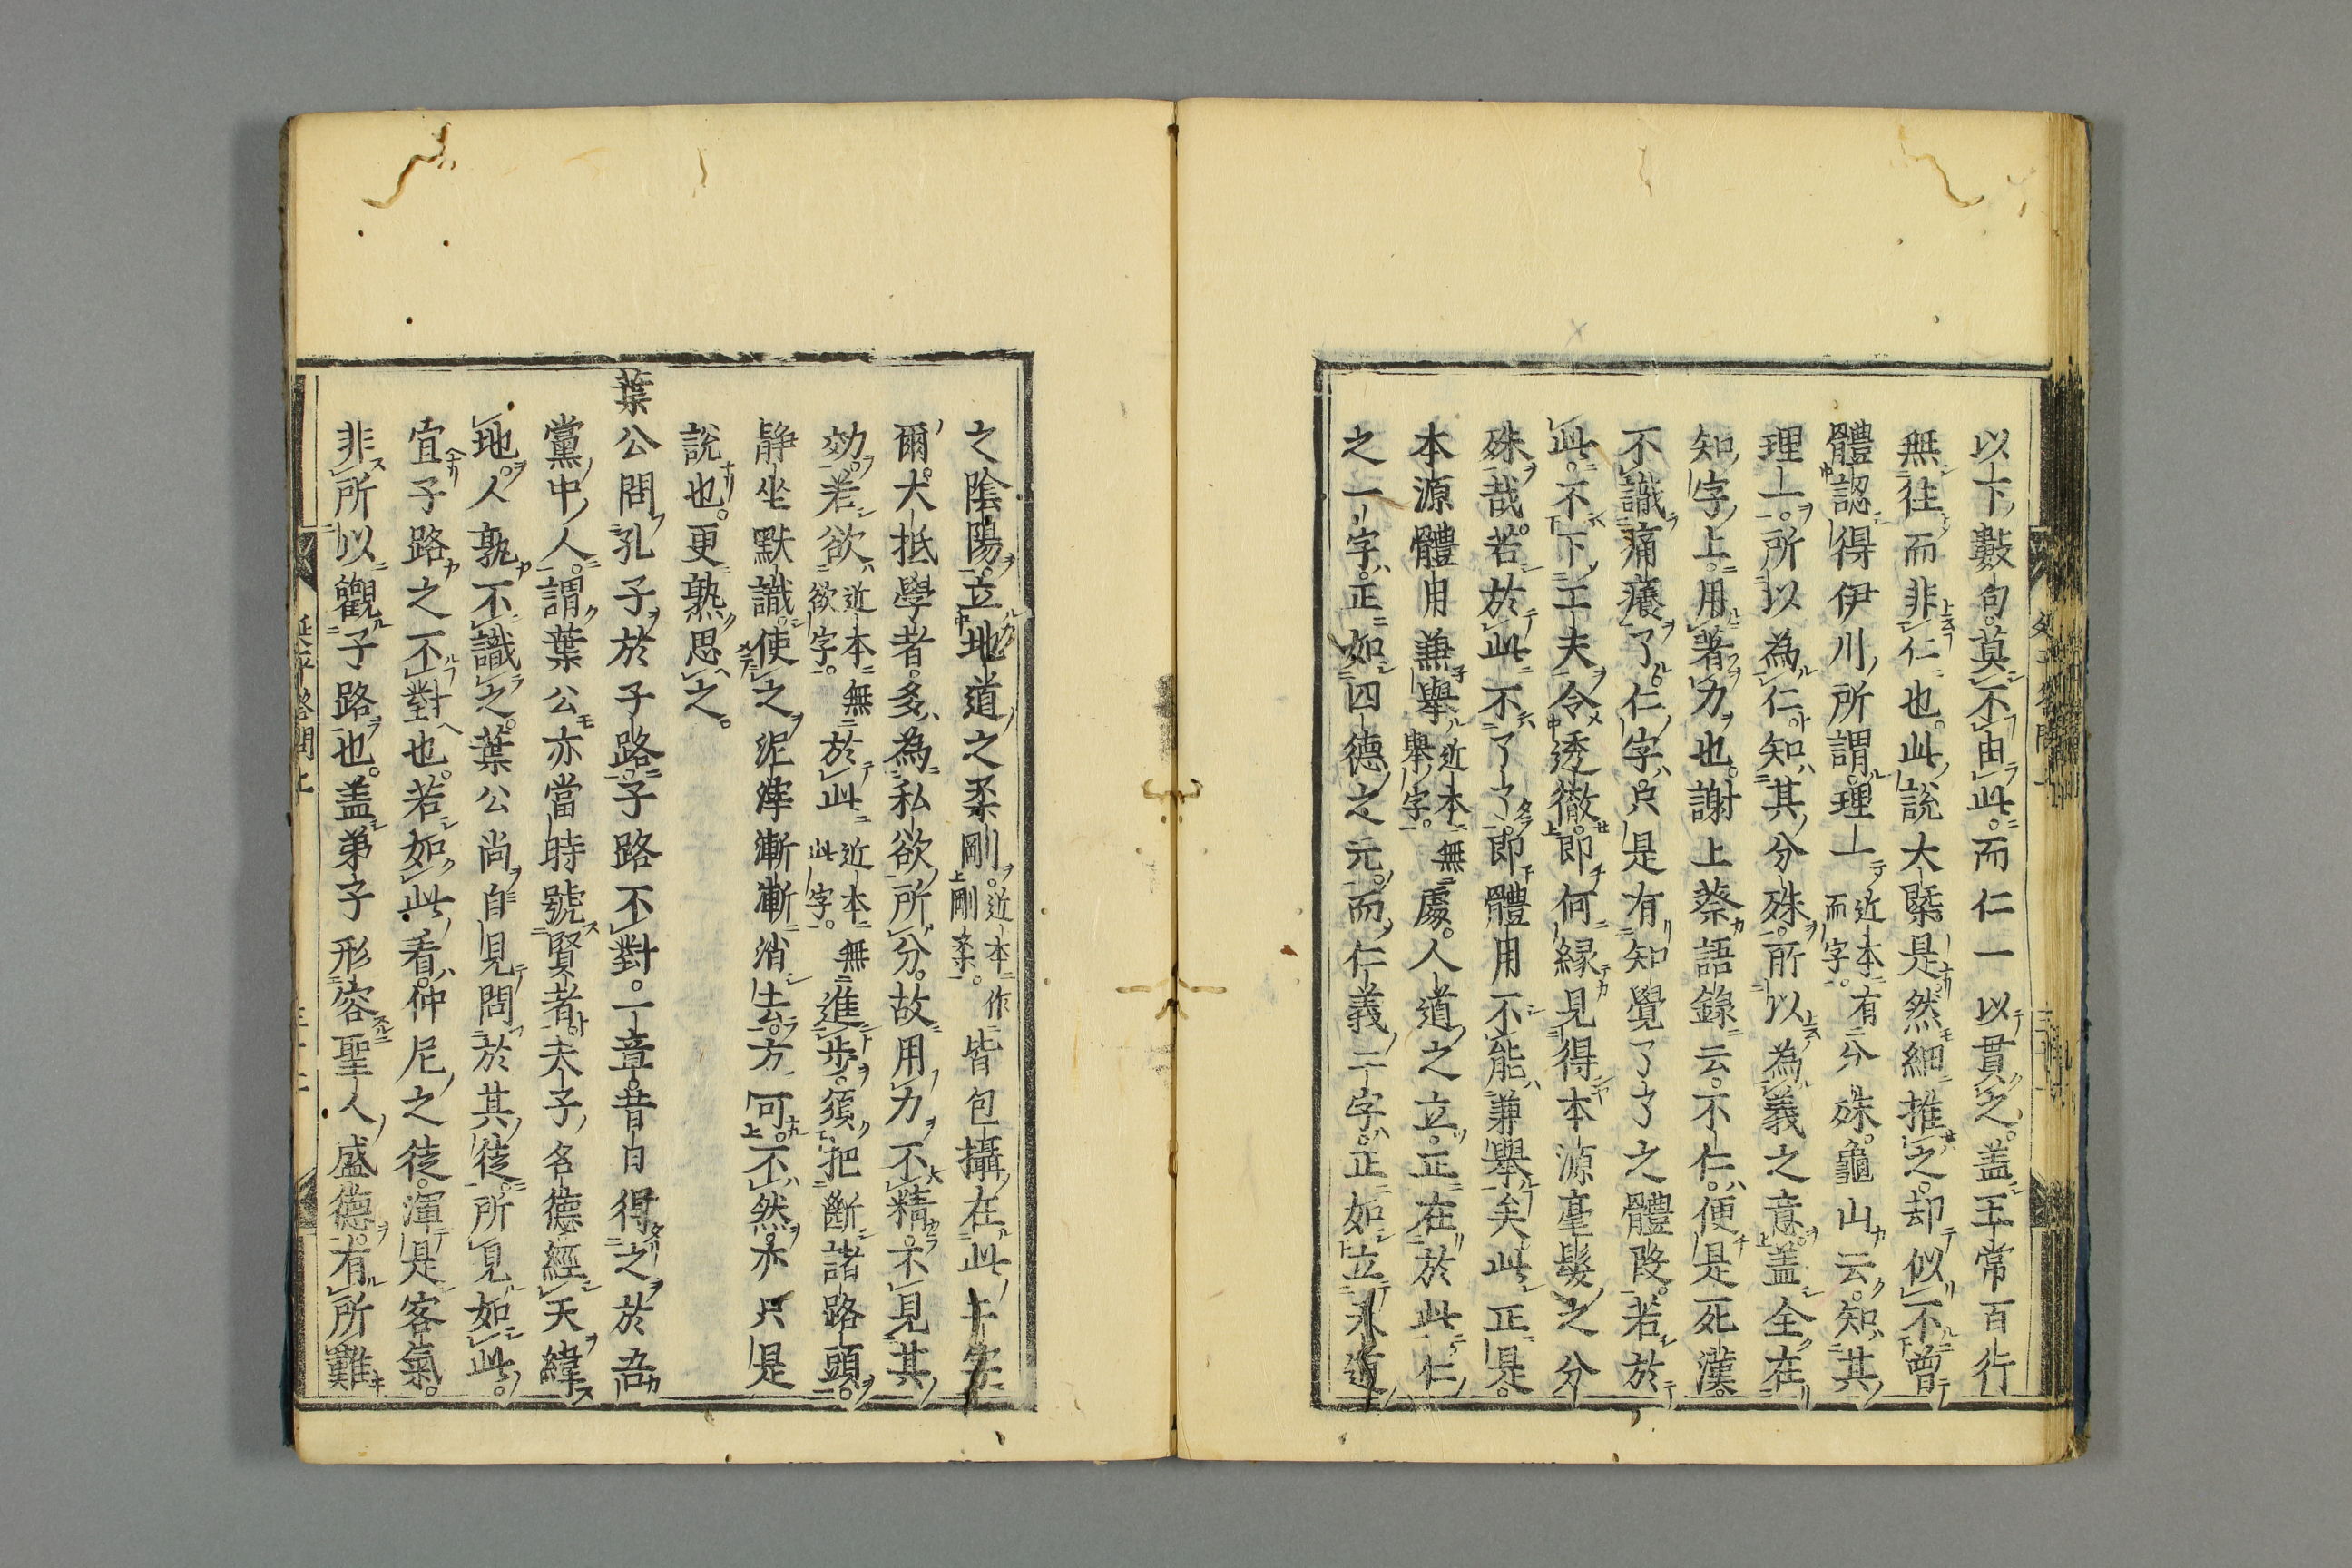 以下數句莫不由此而仁一以貫之蓋五常百行
無往而非仁也此說大槩是然細推之却似不曾
體認得伊川所謂理一近本有而字分殊龜山云知其
理一所以為仁知其分殊所以為義之意蓋全在
知字上用著力也謝上蔡語錄云不仁便是死漢
不識痛癢了仁字只是有知覺了了之體段若於
此不下工夫令透徹即何緣見得本源毫髮之分
殊哉若於此不了了即體用不能兼舉矣此正是
本源體用兼舉近本無舉字處人道之立正在於此仁
之一字正如四德之元而仁義二字正如立天道
之陰陽立地道之柔剛近本作剛柔皆包攝在此二字
爾大抵學者多為私欲所分故用力不精不見其
效若欲近本無欲字於此近本無此字進步須把斷諸路頭
靜坐默識使之泥滓漸漸消去方可不然亦只是
說也更熟思之
葉公問孔子於子路子路不對一章昔日得之於吾
黨中人謂葉公亦當時號賢者夫子名德經天緯
地人孰不識之葉公尚自見問於其徒所見如此
宜子路之不對也若如此看仲尼之徒渾是客氣
非所以觀子路也蓋弟子形容聖人盛德有所難